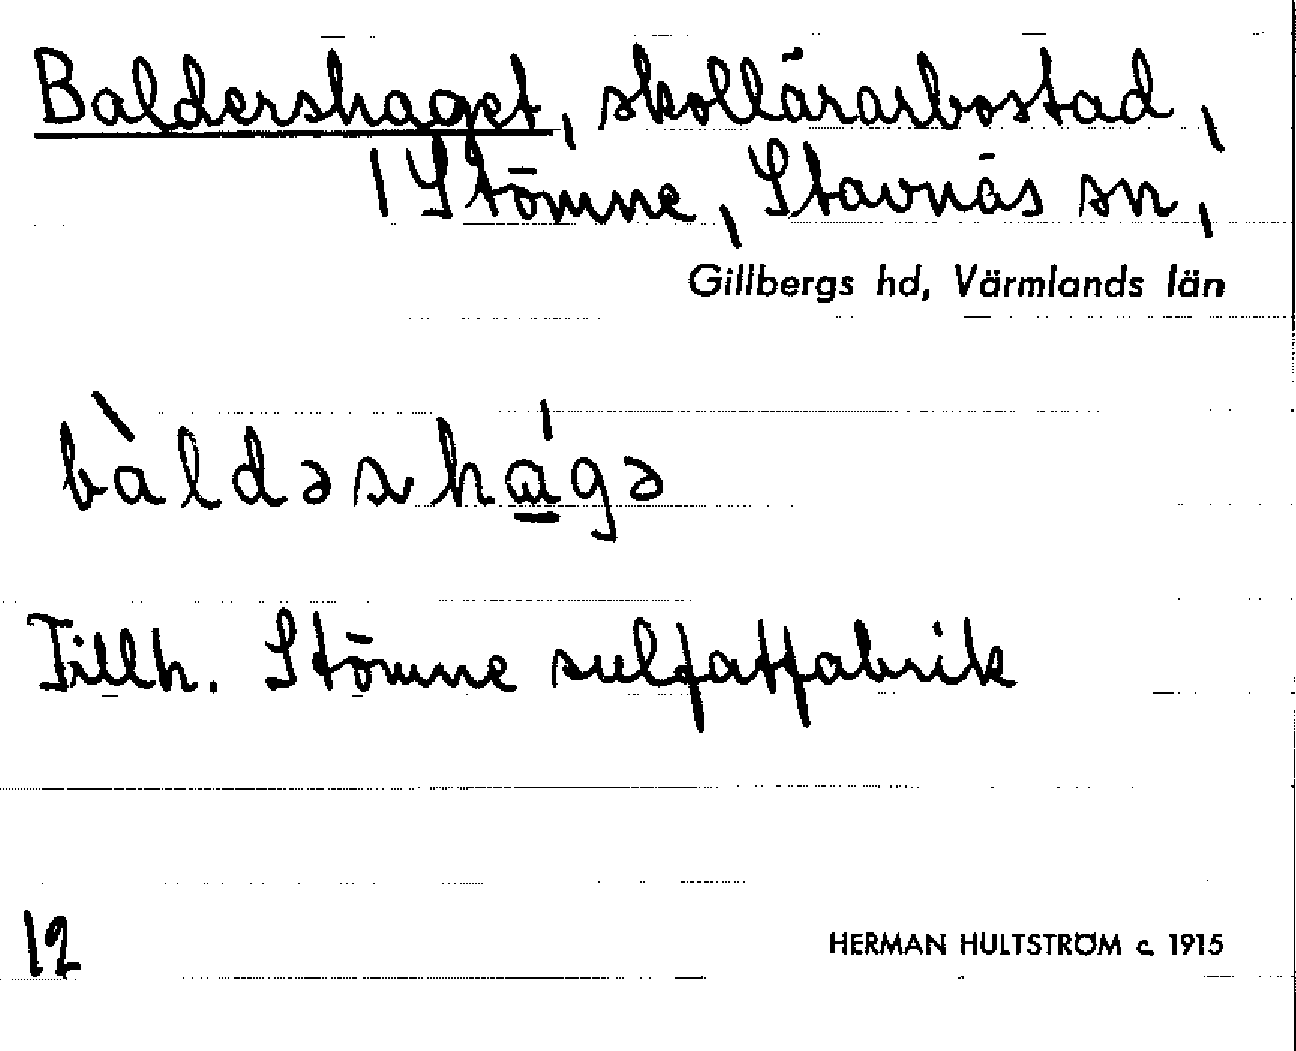 Baldershaget, skollärarbostad,
1 Stömne, Stavnäs sn,
Gillbergs hd, Värmlands län
bàldəʂhá̱gə
Tillh. Stömne sulfatfabrik
12
HERMAN HULTSTRÖM c. 1915